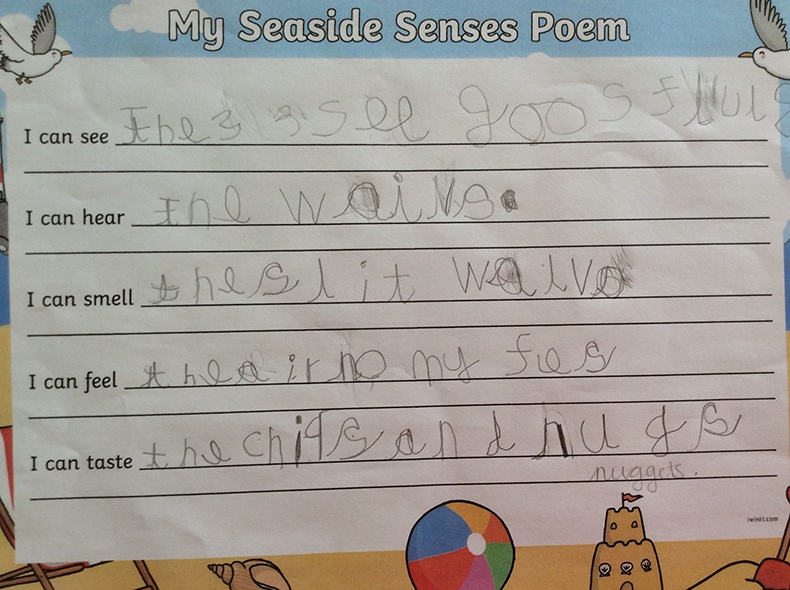 My Seaside Senses Poem
I can see the see goos
I can hear the waivs
I can smell the slit waivs
I can feel the air no my fes
I can taste the chips and nugs
nuggets.
twinkl.com